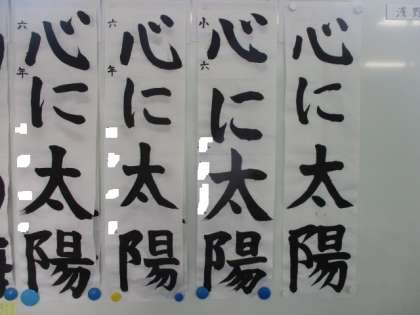 心に太陽
心に太陽
小六
心に太陽
六年
心に太陽
六年